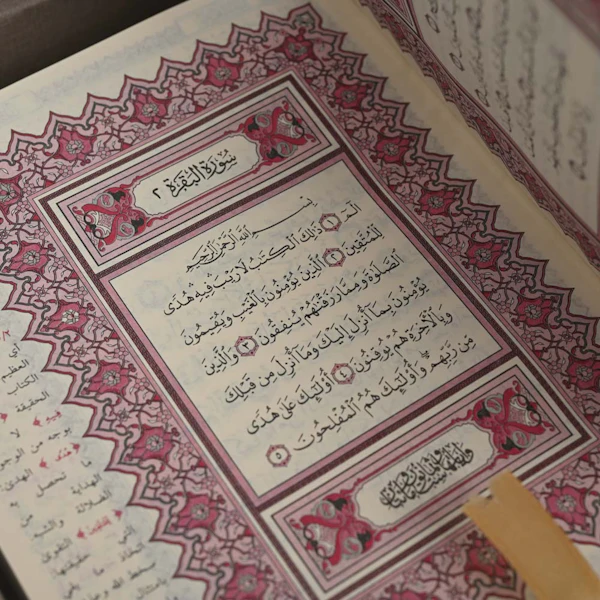 سُورَةُ البَقَرَةِ ٢
بِسْمِ ٱللَّهِ ٱلرَّحْمَٰنِ ٱلرَّحِيمِ
الٓمٓ ١ ذَٰلِكَ ٱلْكِتَٰبُ لَا رَيْبَ فِيهِ هُدًى
لِّلْمُتَّقِينَ ٢ ٱلَّذِينَ يُؤْمِنُونَ بِٱلْغَيْبِ وَيُقِيمُونَ
ٱلصَّلَوٰةَ وَمِمَّا رَزَقْنَٰهُمْ يُنفِقُونَ ٣ وَٱلَّذِينَ
يُؤْمِنُونَ بِمَآ أُنزِلَ إِلَيْكَ وَمَآ أُنزِلَ مِن قَبْلِكَ
وَبِٱلْءَاخِرَةِ هُمْ يُوقِنُونَ ٤ أُو۟لَٰٓئِكَ عَلَىٰ هُدًى
مِّن رَّبِّهِمْ وَأُو۟لَٰٓئِكَ هُمُ ٱلْمُفْلِحُونَ ٥
أي
العظيم
الكتاب
الحقيقة
فِيهِ لا
بوجه من
هُدًى ما
تحصل
الهداية
الضلالة
حقيقتها
سخط الله